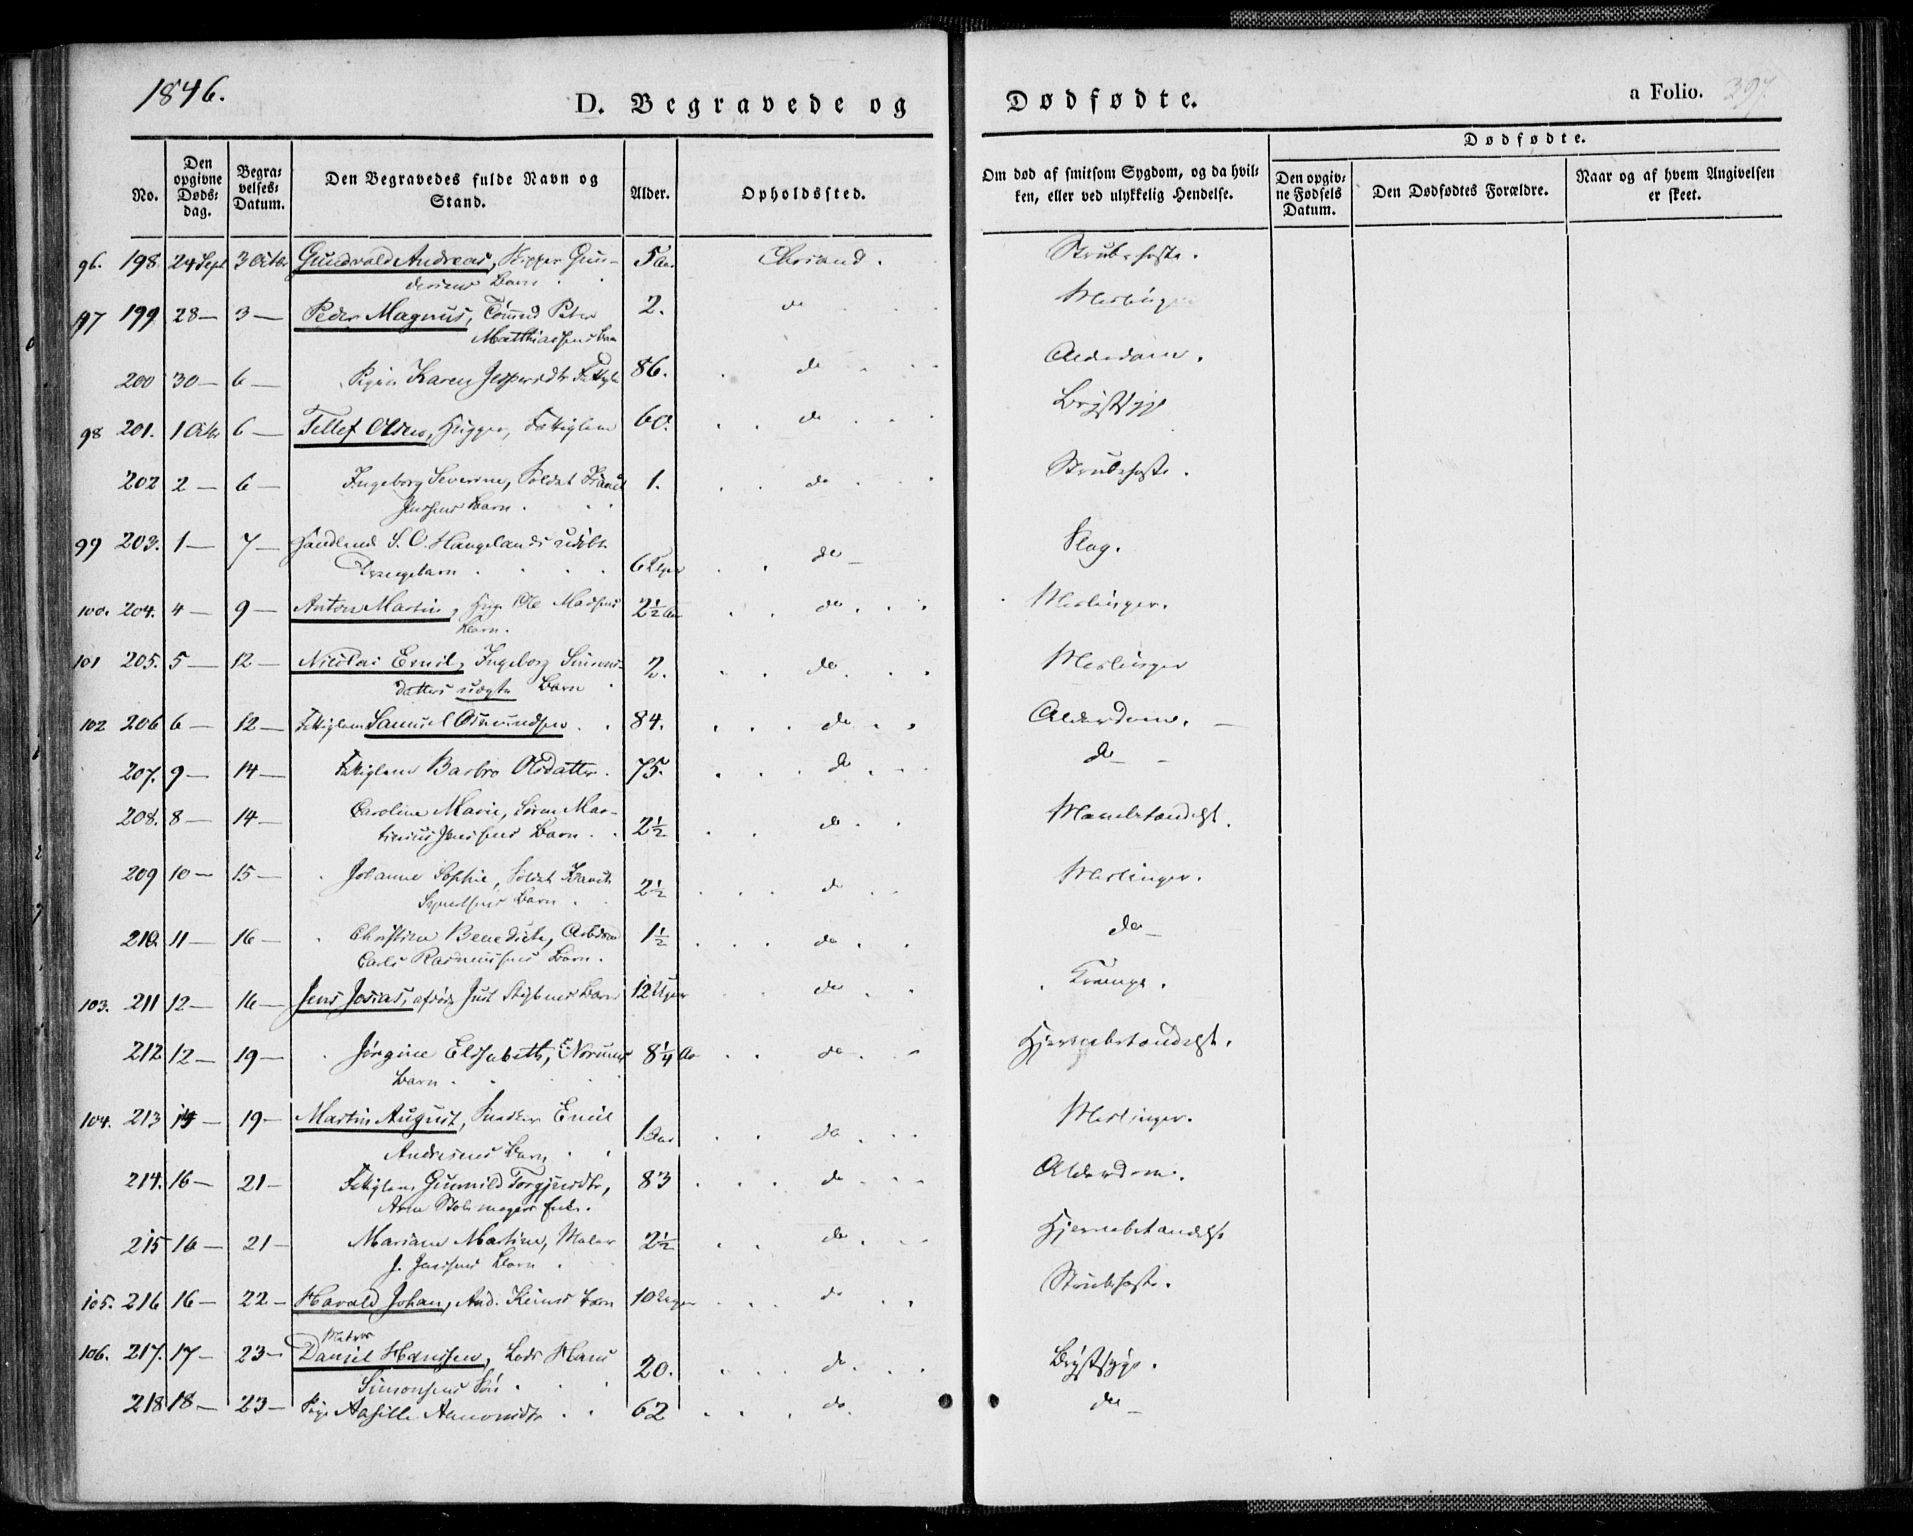 1846.
D. Begravede og
Dødfødte.
a Folio. 397
No.
Den opgivne Døds-dag.
Begra-velses-Datum.
Den Begravedes fulde Navn og Stand.
Alder.
Opholdssted.
Om død af smitsom Sygdom, og da hvil-ken, eller ved ulykkelig Hendelse.
Dødfødte.
Den opgiv-ne Fødsels Datum.
Den Dødfødtes Forældre.
Naar og af hvem Angivelsen er skeet.
96. 198. 24 Sept 3 Octbr Gundvald Andreas, Skipper Gun- 5 Aar Chrsand. Strubehoste.
dersens Barn
97 199 28 — 3 — Peder Magnus, Tømmd Peter 2. do Meslinger
Matthiasens Barn
200 30 — 6 — Pigen Karen Jespersdtr Fattiglem 86. do Alderdom.
98 201. 1 Octbr 6 — Tellef Olsen, Fattiglem 60. do Brystsyge
202 2 — 6 — Ingeborg Severine, Soldat 1. do Strubehoste.
Jensens Barn.
99 203. 1 — 7 — Handlende S. O. Haugelands udøbte do Slag.
Drengebarn 6 Uger
100. 204. 4 — 9 — Anton Martin, Ole Madsens 2½ Aar do Meslinger.
Barn.
101 205. 5 — 12 — Nicolai Emil, Ingeborg Simons- 2. do Meslinger
datters uægte Barn
102 206 6 — 12 — Fattiglem Samuel Osmundsen 84. do Alderdom. —
207. 9 — 14 — Fattiglem Barbro Olsdatter. 75. do do —
208. 8 — 14 — Caroline Marie, Mar- 2½ do
tinius Jensens Barn
209 10 — 15 — Johanne Sophie, Soldat 2½ do Meslinger.
Barn
210 11 — 16 — Christine Benedicte, Arbdsmd 1½ do do —
Carls Rasmussens Barn.
103. 211 12 — 16 — Jens Josias, afdøde Just Barn 12 Uger do Krampe.
212 12 — 19 — Jørgine Elisabeth, 8¼ Aar do Hjernebetændelse.
Barn
104. 213 14 — 19 — Martin August, Snedker Emil 1 Aar do Meslinger.
Andresens Barn
214. 16 — 21 — Fattiglem Gunnild Torgjusdtr, 83 do Alderdom.
Arne Stolemagers Enke.
215 16 — 21 — Mariane Martine, Maler 2½ do Hjernebetændelse
J. Jensens Barn
105. 216 16 — 22 — Harald Johan, And. Barn 10 Uger do Strubehoste.
Matros
106. 217. 17 — 23 — Daniel Hansen, Lods Hans 20. do Brystsyge.
Simonsens Søn
218 18 — 23 — Pige 62 do do —